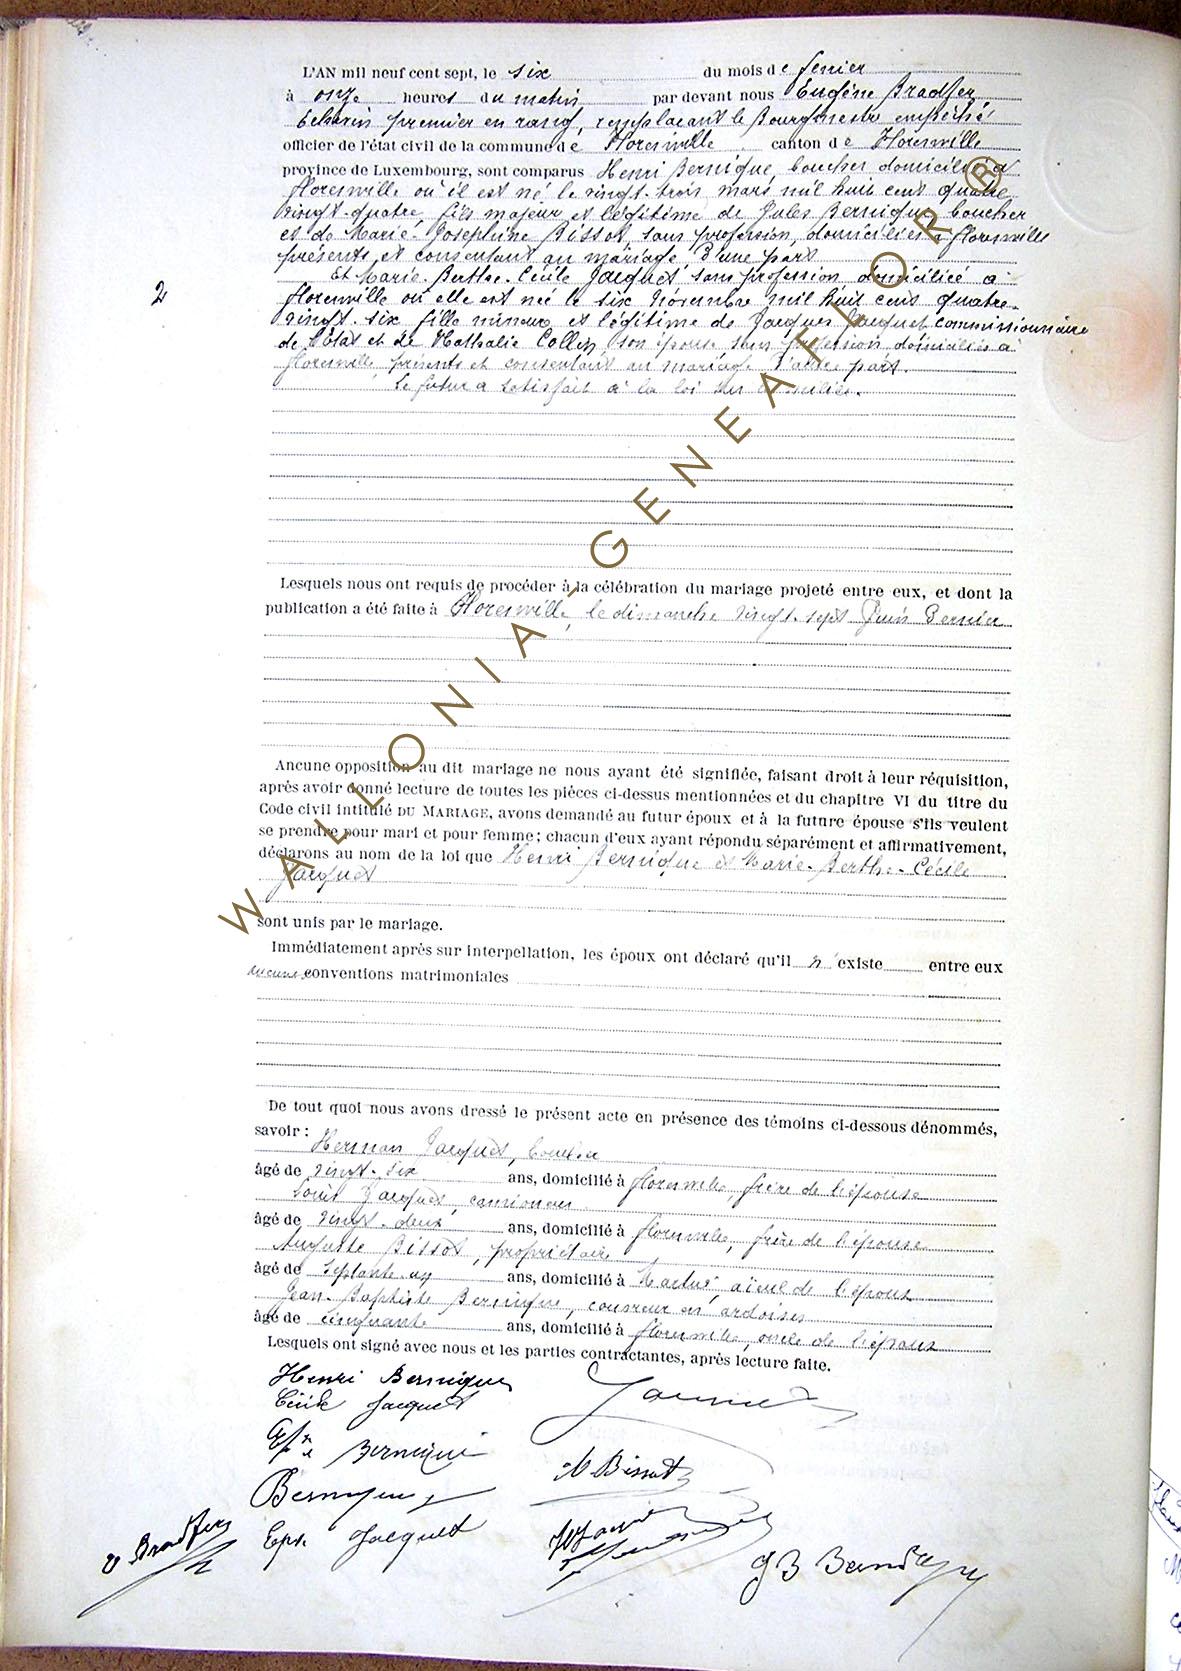 L'AN mil neuf cent sept, le six du mois de fevrier
à onze heures du matin par devant nous Eugène Bradfer
Echevin premier en rang, remplaçant le Bourgmestre empêché
officier de l'état civil de la commune de Florenville canton de Florenville
province de Luxembourg, sont comparus Henri Bernique, boucher domicilié à
florenville où il est né le vingt-trois mars mil huit cent quatre
vingt-quatre, fils majeur et légitime de Jules Bernique boucher
et de Marie-Joséphine Bissot, sans profession, domiciliés à florenville
présents et consentant au mariage d'une part
Et Marie-Berthe-Cécile Jacquet sans profession domiciliée à
2
florenville où elle est née le six Novembre mil huit cent quatre-
vingt-six fille mineure et légitime de Jacques Jacquet commissionnaire
de l'état et de Nathalie Collin son épouse sans profession domiciliés à
florenville présents et consentant au mariage d'autre part.
Le futur a satisfait à la loi sur la milice.
Lesquels nous ont requis de procéder à la célébration du mariage projeté entre eux, et dont la
publication a été faite à Florenville, le dimanche vingt-sept dernier
Ancune opposition au dit mariage ne nous ayant été signifiée, faisant droit à leur réquisition,
après avoir donné lecture de toutes les pièces ci-dessus mentionnées et du chapitre VI du titre du
Code civil intitulé DU MARIAGE, avons demandé au futur époux et à la future épouse s'ils veulent
se prendre pour mari et pour femme; chacun d'eux ayant répondu séparément et affirmativement,
déclarons au nom de la loi que Henri Bernique et Marie-Berthe-Cécile
Jacquet
sont unis par le mariage.
Immédiatement après sur interpellation, les époux ont déclaré qu'il n'existe entre eux
aucune conventions matrimoniales
De tout quoi nous avons dressé le présent acte en présence des témoins ci-dessous dénommés,
savoir : Herman Jacquet,
âgé de vingt-six ans, domicilié à florenville, frère de l'épouse
Louis Jacquet, camionneur
âgé de vingt-deux ans, domicilié à florenville, frère de l'épouse
Auguste Bissot, propriétaire
âgé de septante-un ans, domicilié à aïeul de l'époux
Jean-Baptiste Bernique, couvreur en ardoises
âgé de cinquante ans, domicilié à florenville, oncle de l'époux
Lesquels ont signé avec nous et les parties contractantes, après lecture faite.
Henri Bernique
Cécile Jacquet
Bernique
Bissot
Bernique
Bradfer
Eps. Jacquet
J B Bernique
WALLONIA-GENEAFLOR®